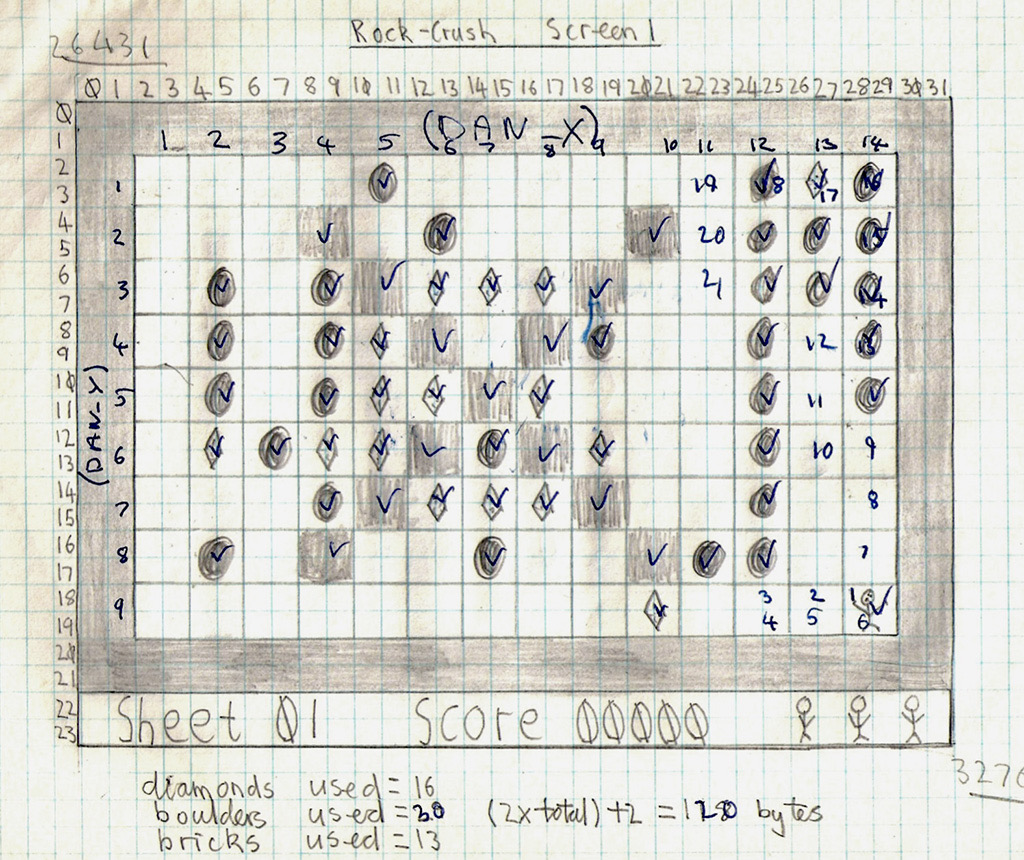 Rock-Crush Screen 1
26431
0 1 2 3 4 5 6 7 8 9 10 11 12 13 14 15 16 17 18 19 20 21 22 23 24 25 26 27 28 29 30 31
0
(DAN-X)
1 1 2 3 4 5 6 7 8 9 10 11 12 13 14
2
1 19 18 17 16
3
4
2 20 15
5
6
3 21 14
7
8
4 12 13
9
10
5 11
11
(DAN-Y)
12
6 10 9
13
14
7 8
15
16
8 7
17
18 3 2 1
9
19 4 5 6
20
21
22
Sheet 01 Score 00000
23
3276
diamonds used = 16
boulders used = 30 (2x total) + 2 = 120 bytes
bricks used = 13